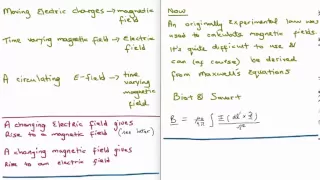 Moving Electric charges → magnetic
field
Time varying magnetic field → Electric
field
A circulating E-field → time
varying
magnetic
field.
A changing Electric field gives
Rise to a magnetic field (see later)
A changing magnetic field gives
rise to an electric field
Now
An originally experimental law was
used to calculate magnetic fields.
It's quite difficult to use &
can (of course) be derived
from Maxwells Equations
Biot & Savart